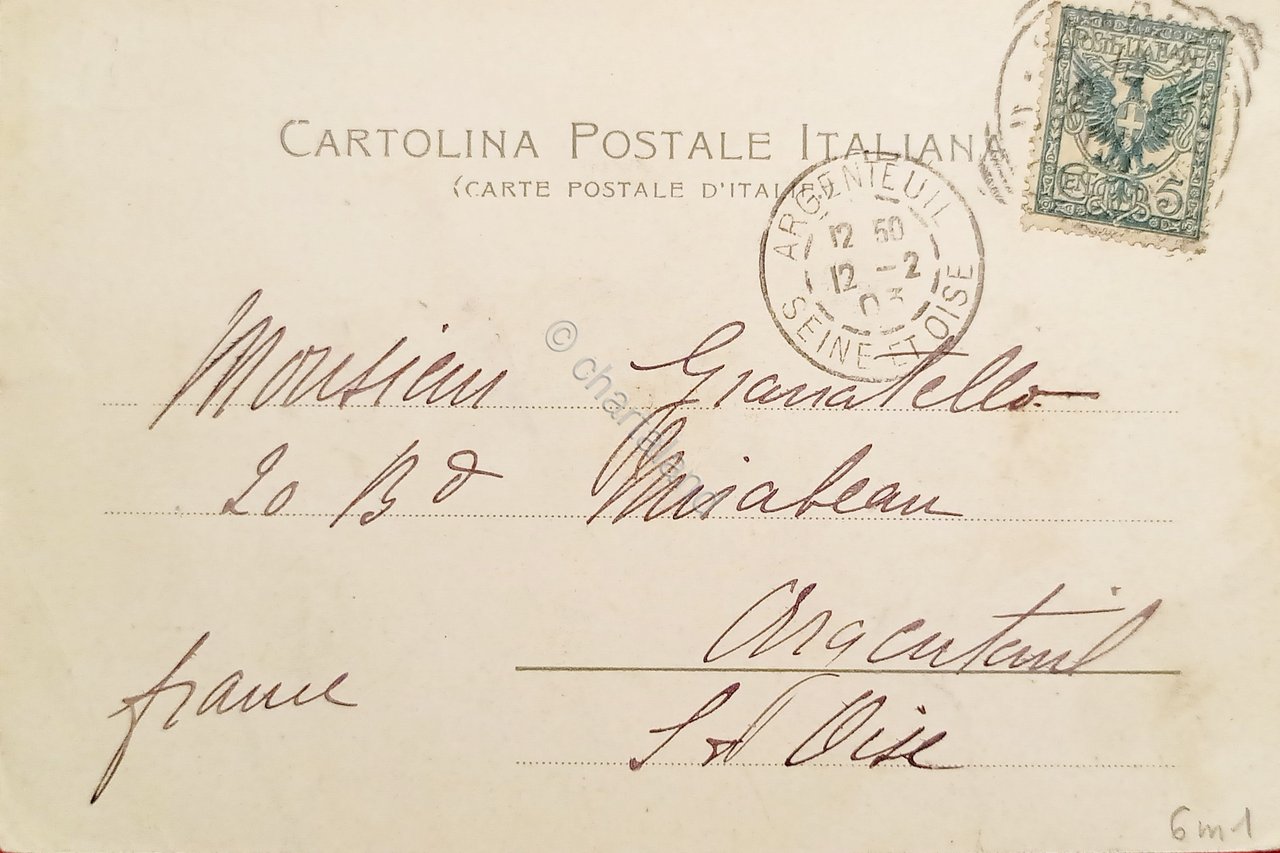 CARTOLINA POSTALE ITALIANA
(CARTE POSTALE D'ITALIE)
POSTE ITALIANE
CENT. 5
ARGENTEUIL
12 50
12 -2
03
SEINE ET OISE
© chartaland
Monsieur Granatello
20 Bd Mirabeau
Argenteuil
france
S et Oise
6m1